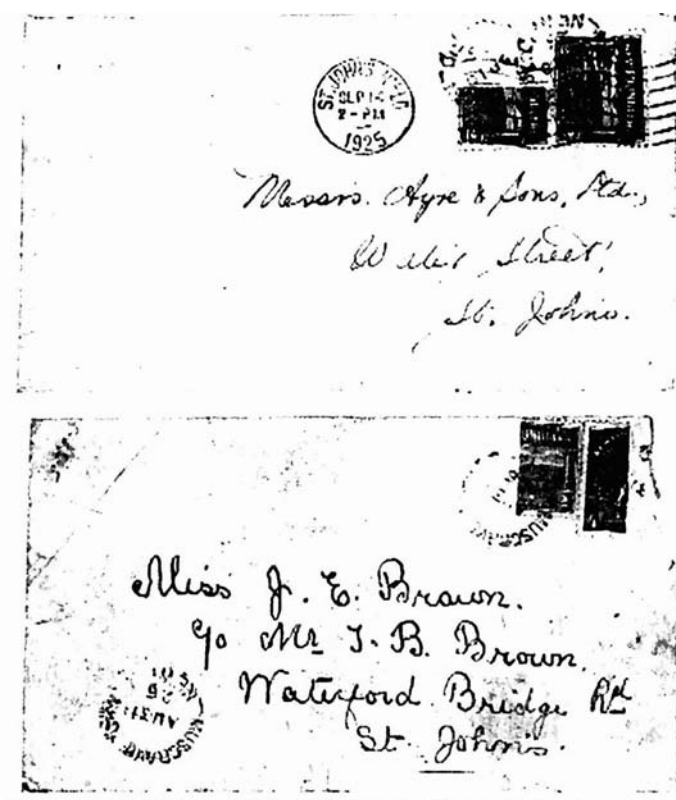 ST. JOHN'S N'F'L'D
SEP 14
2-PM
1925
Messrs. Ayre & Sons, Ltd.,
Water Street,
St. Johns.
Miss J. E. Brown.
c/o Mr. J. B. Brown.
Waterford Bridge Rd
St. John's.
MUSGRAVE
MUSGRAVE
AU 31